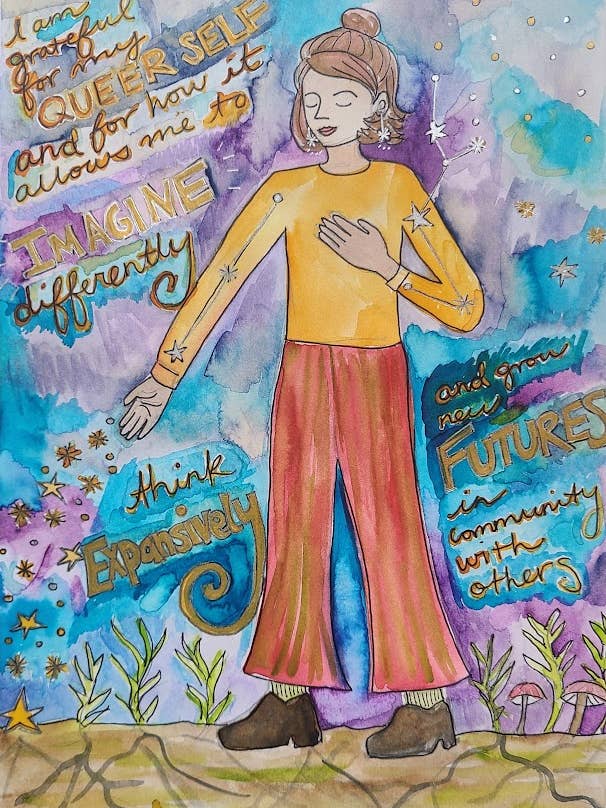 I am
grateful
for my
QUEER SELF
and for how it
allows me to
IMAGINE
differently
think
Expansively
and grow
new
FUTURES
in
community
with
others